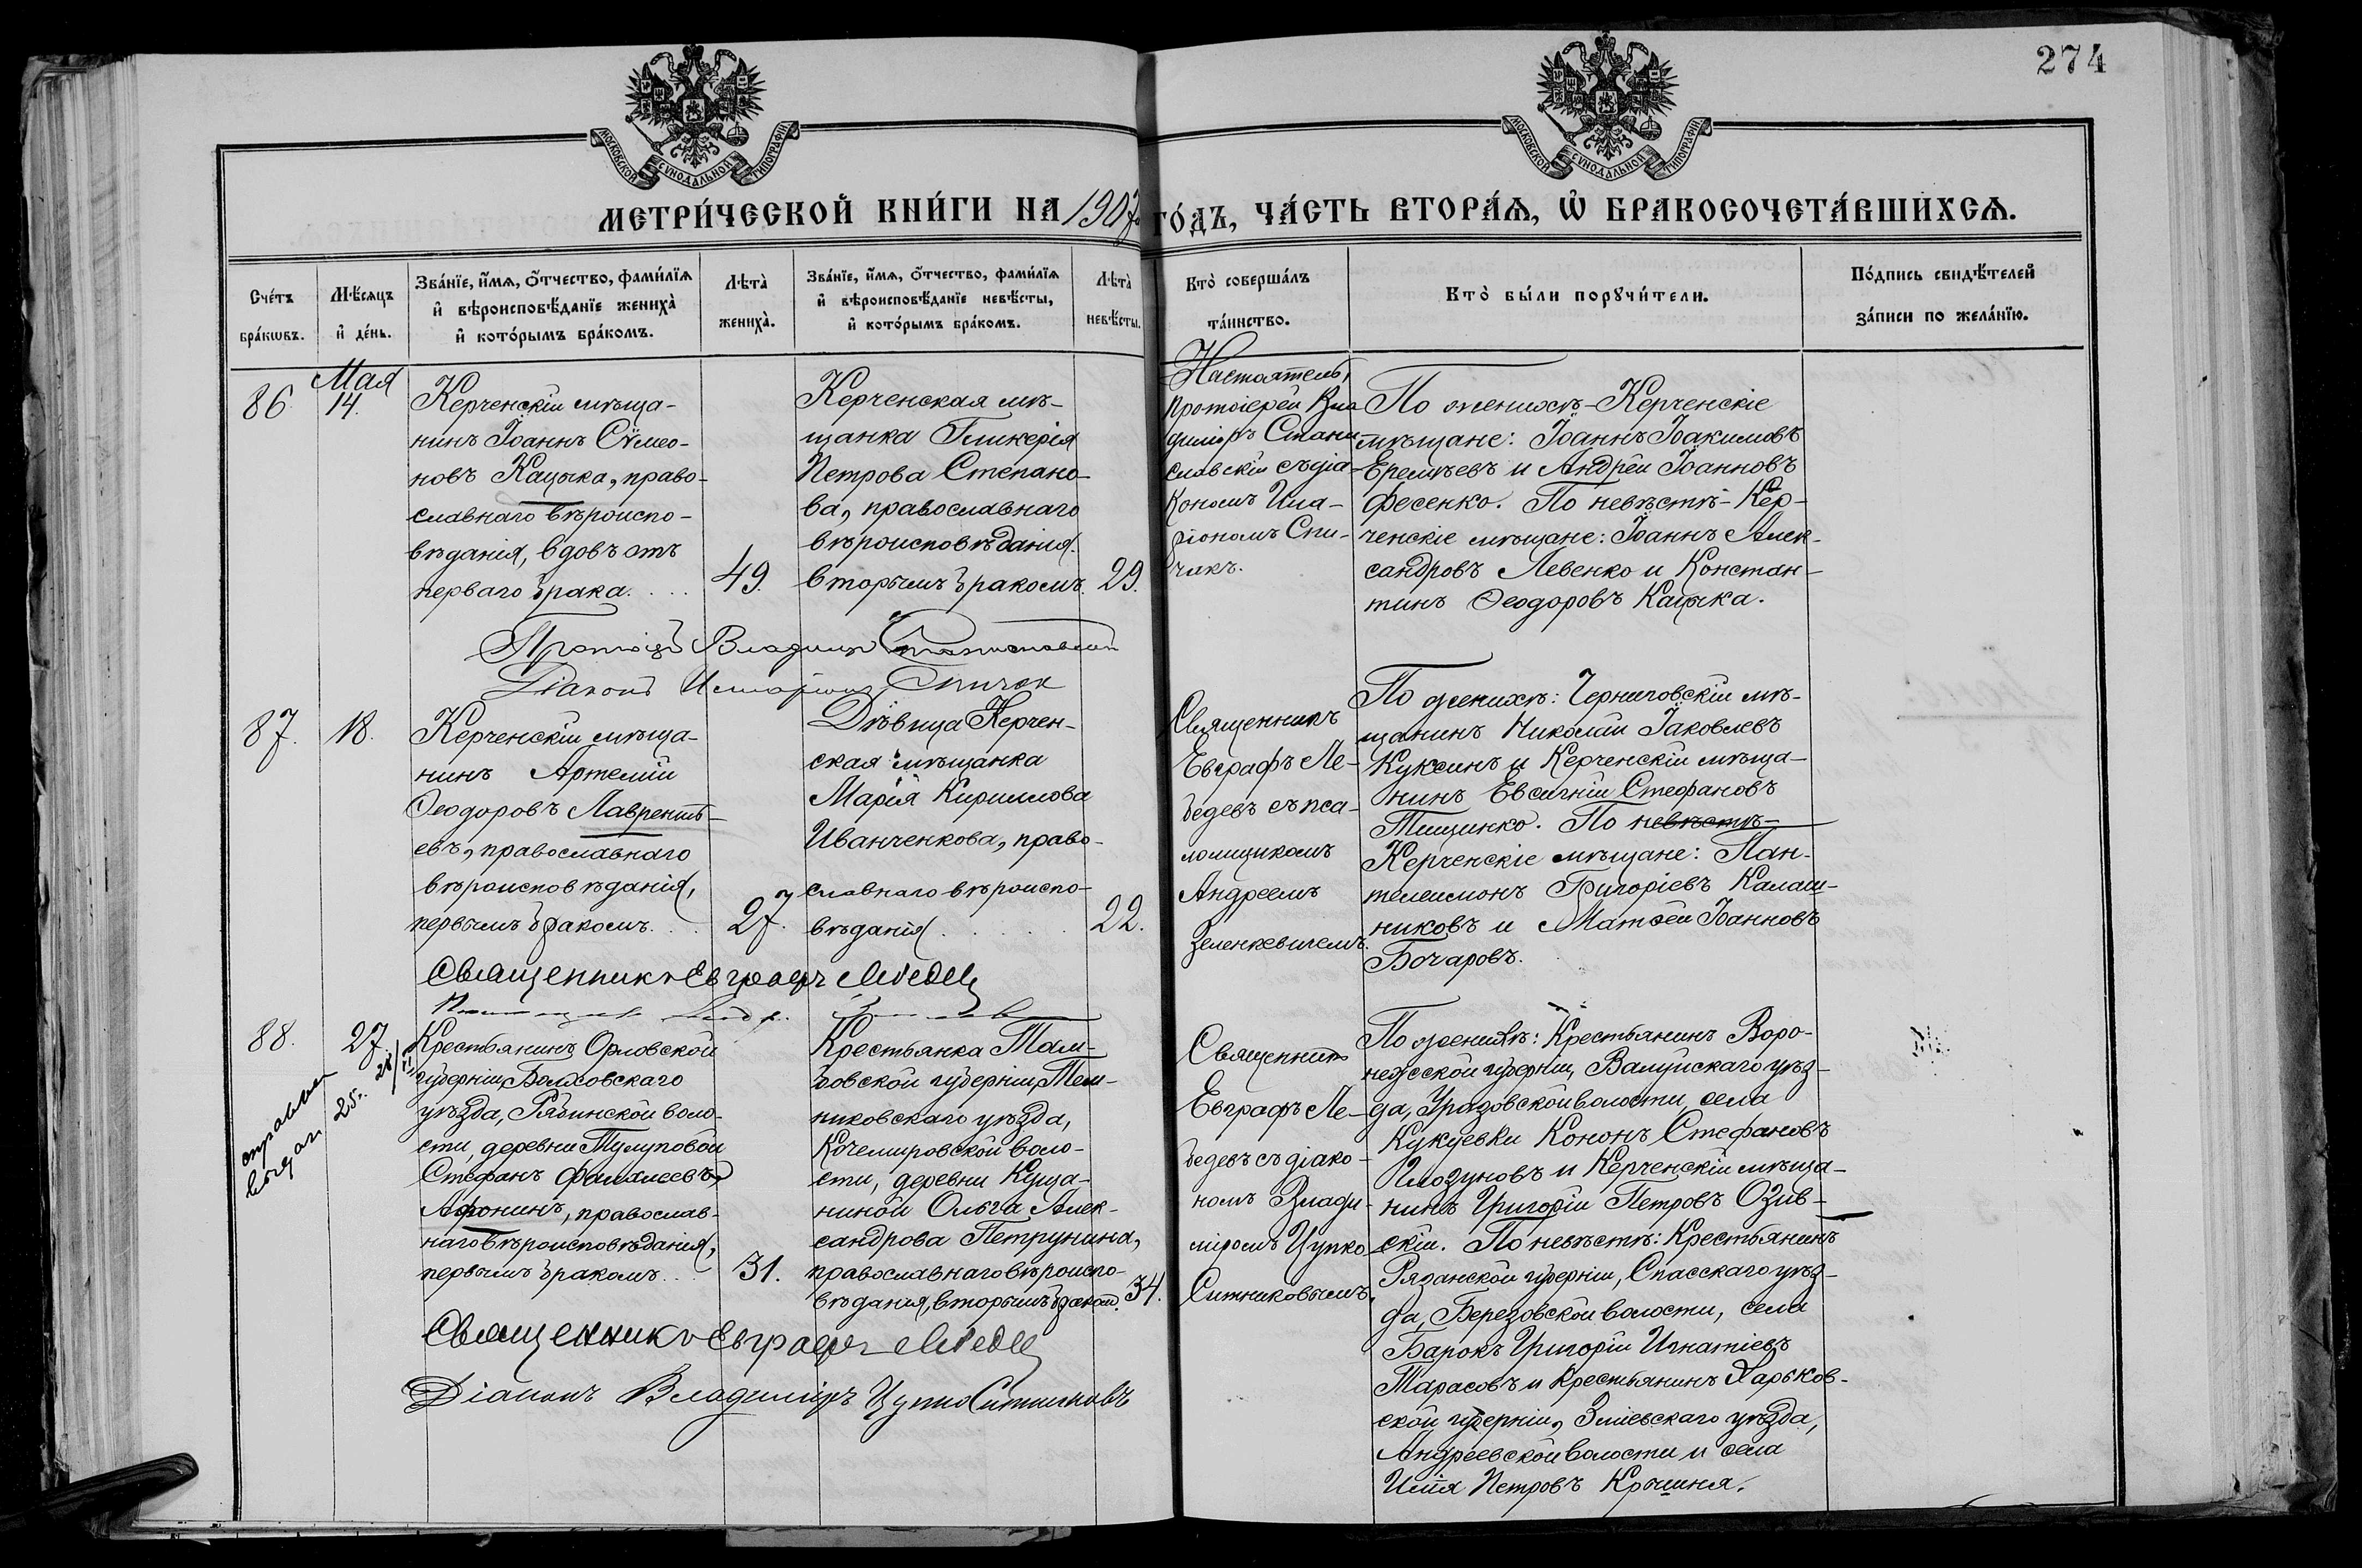 274
МОСКОВСКОЙ СУНОДАЛЬНОЙ ТИПОГРАФІИ
МОСКОВСКОЙ СУНОДАЛЬНОЙ ТИПОГРАФІИ
МЕТРИ́ЧЕСКОЙ КНИ́ГИ НА 1907 ГО́ДЪ, ЧА́СТЬ ВТОРА́Ѧ, Ѡ҆ БРАКОСОЧЕТА́ВШИХСѦ.
Сче́тъ бра́кѡвъ.
Мѣ́сѧцъ и҆ де́нь.
Зва́нїе, и҆́мѧ, о҆́тчество, фами́лїѧ
и҆ вѣроисповѣ́данїе жениха̀
и҆ кото́рымъ бра́комъ.
Лѣта̀ жениха̀.
Зва́нїе, и҆́мѧ, о҆́тчество, фами́лїѧ
и҆ вѣроисповѣ́данїе невѣ́сты,
и҆ кото́рымъ бра́комъ.
Лѣта̀ невѣ́сты.
Кто̀ соверша́лъ
та́инство.
Кто̀ бы́ли порꙋчи́тели.
По́дпись свидѣ́телей
за́писи по жела́нїю.
86.
Мая
14.
Керченскій мѣща-
нинъ Іоаннъ Сѵмео-
новъ Кацыка, право-
славнаго вѣроиспо-
вѣданія, вдовъ отъ
перваго брака. . . .
49.
Керченская мѣ-
щанка Гликерія
Петрова Степано-
ва, православнаго
вѣроисповѣданія.
вторымъ бракомъ.
29.
Настоятель,
протоіерей Вла
диміръ Стани
славскій съ діа-
кономъ Ила-
ріономъ Спи-
чакъ.
По женихѣ - Керченскіе
мѣщане: Іоаннъ Іоакимовъ
Еремѣевъ и Андрей Іоанновъ
Фесенко. По невѣстѣ - Кер-
ченскіе мѣщане: Іоаннъ Алек-
сандровъ Левенко и Констан-
тинъ Ѳеодоровъ Кацыка.
Владиміръ Станиславскій
Діаконъ Иларіонъ Спичак
87.
18.
Керченскій мѣща-
нинъ Артемій
Ѳеодоровъ Лавренть-
евъ, православнаго
вѣроисповѣданія,
первымъ бракомъ. . .
27.
Дѣвица Керчен-
ская мѣщанка
Марія Кириллова
Иванченкова, право-
славнаго вѣроиспо-
вѣданія. . . . . .
22.
Священникъ
Евграфъ Ле-
бедевъ съ пса-
ломщикомъ
Андреемъ
Зеленкевичемъ.
По женихѣ: Черниговскій мѣ-
щанинъ Николай Іаковлевъ
Куксинъ и Керченскій мѣща-
нинъ Евсигній Стефановъ
Тищенко. По невѣстѣ-
Керченскіе мѣщане: Пан-
телеимонъ Григоріевъ Калаш-
никовъ и Матѳей Іоанновъ
Бочаровъ.
Священникъ Евграфъ Лебедев
88.
27.
Крестьянинъ Орловской
губерніи, Болховскаго
уѣзда, Рябинской воло-
сти, деревни Тулуповой
Стефанъ
Афонинъ, православ-
наго вѣроисповѣданія,
первымъ бракомъ. . .
31.
Крестьянка Там-
бовской губерніи, Тем-
никовскаго уѣзда,
Кочемировской воло-
сти, деревни Куща-
ниной Ольга Алек-
сандрова Петрунина,
православнаго вѣроиспо-
вѣданія, вторымъ браком.
34.
Священникъ
Евграфъ Ле-
бедевъ съ діако-
номъ Влади-
міромъ Цупко
Ситниковымъ.
По женихѣ: Крестьянинъ Воро-
нежской губерніи, Валуйскаго уѣз-
да, Уразовской волости, села
Кукуевки Кононъ Стефановъ
Глозуновъ и Керченскій мѣща-
нинъ Григорій Петровъ Озив-
скій. По невѣстѣ: Крестьянинъ
Рязанской губерніи, Спасскаго уѣз-
да, Березовской волости, села
Барокъ Григорій Игнатіевъ
Тарасовъ и Крестьянинъ Харьков-
ской губерніи, Зміевскаго уѣзда,
Андреевской волости и села
Илія Петровъ Крышня.
Священникъ Евграфъ Лебедев
Діаконъ Владиміръ Цупко Ситниковъ